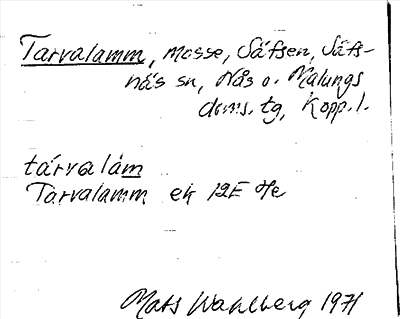 Tarvalamm, mosse, Säfsen, Säfs-
näs sn, Nås o. Malungs
doms. tg, Kopp. l.
tárvalàm
Tarvalamm ek 12E He
Mats Wahlberg 1971